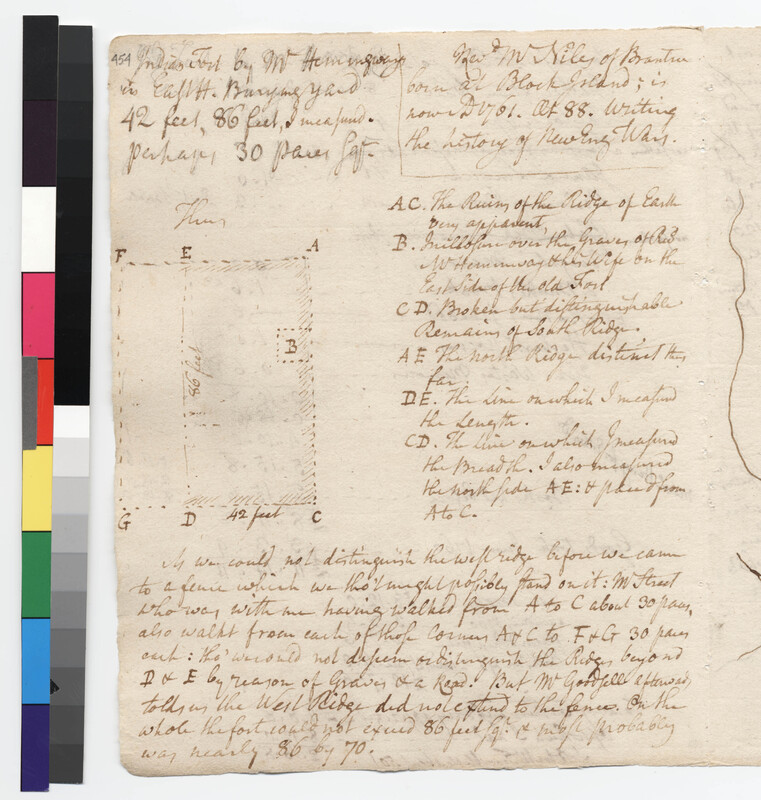 454 Indian Fort by Mr Hemingway
in East H. Burying yard
42 feet, 86 feet, I measurd.
perhaps 30 paces Sqr.
Revd Mr Niles of Brantre
born at Block Island; is
now AD 1761. Æt 88. Writing
the history of New Eng Wars.
Thus
F E A
B
86 feet
G D 42 feet C
A C. The Ruins of the Ridge of Earth
very apparent,
B. Inclosure over the Graves of Revd
Mr Hemingway & his Wife on the
East Side of the old Fort
C D. Broken but distinguishable
Remains of South Ridge.
A E The north Ridge distinct thus
far
D E. The Line on which I measurd
the Length.
C D. The Line on which I measured
the Breadth. I also measured
the north side A E: & paced from
A to C.
As we could not distinguish the west ridge before we came
to a fence which we tho't might possibly stand on it: Mr Street
who was with me having walked from A to C about 30 paces,
also walkt from each of those Corners A & C to F & G 30 paces
each: tho' we could not discern or distinguish the Ridges beyond
D & E by reason of Graves & a Road. But Mr Goodsell afterwards
told us the West Ridge did not extend to the fence. On the
whole the fort could not exceed 86 feet Sqr. & most probably
was nearly 86 by 70.